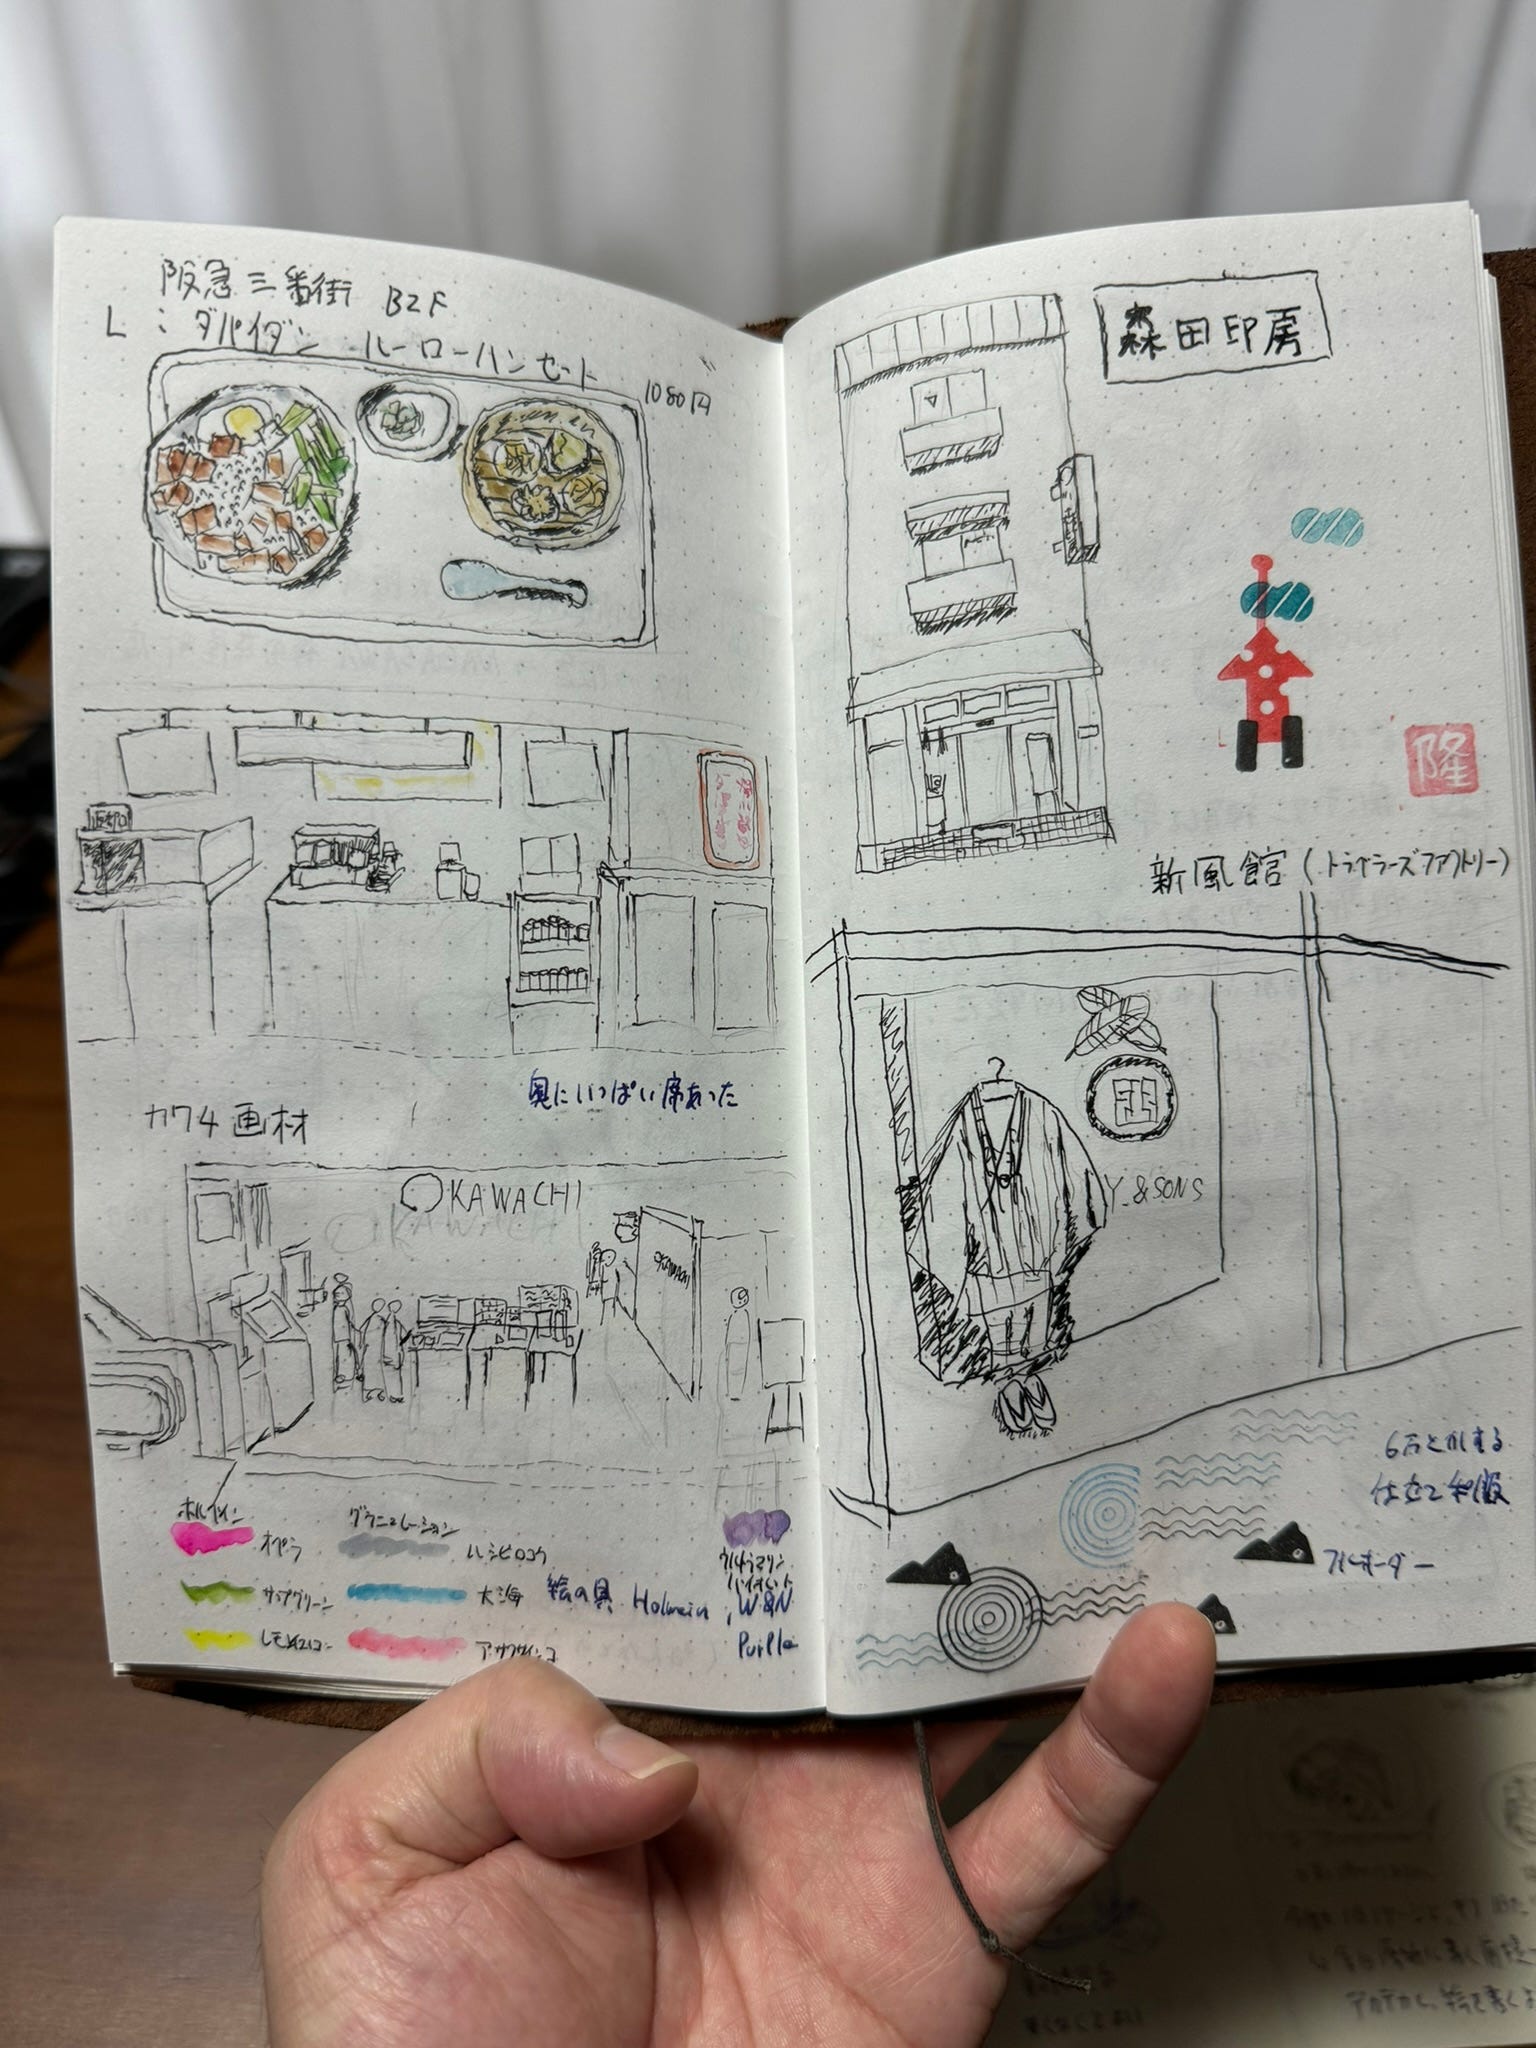 阪急三番街 B2F
L：ダパイダン ルーローハンセット 1080円
返却口
奥にいっぱい席あった
カワチ画材
KAWACHI
KAWACHI
ホルベイン
オペラ
サップグリーン
レモンイエロー
グラニュレーション
ハシビロコウ
大海
アサクサインコ
絵の具 Holbein, W&N
ウルトラマリン
バイオレット
Purple
森田印房
隆
新風館（トラベラーズファクトリー）
Y. & SONS
6万とかする
仕立て和服
フルオーダー